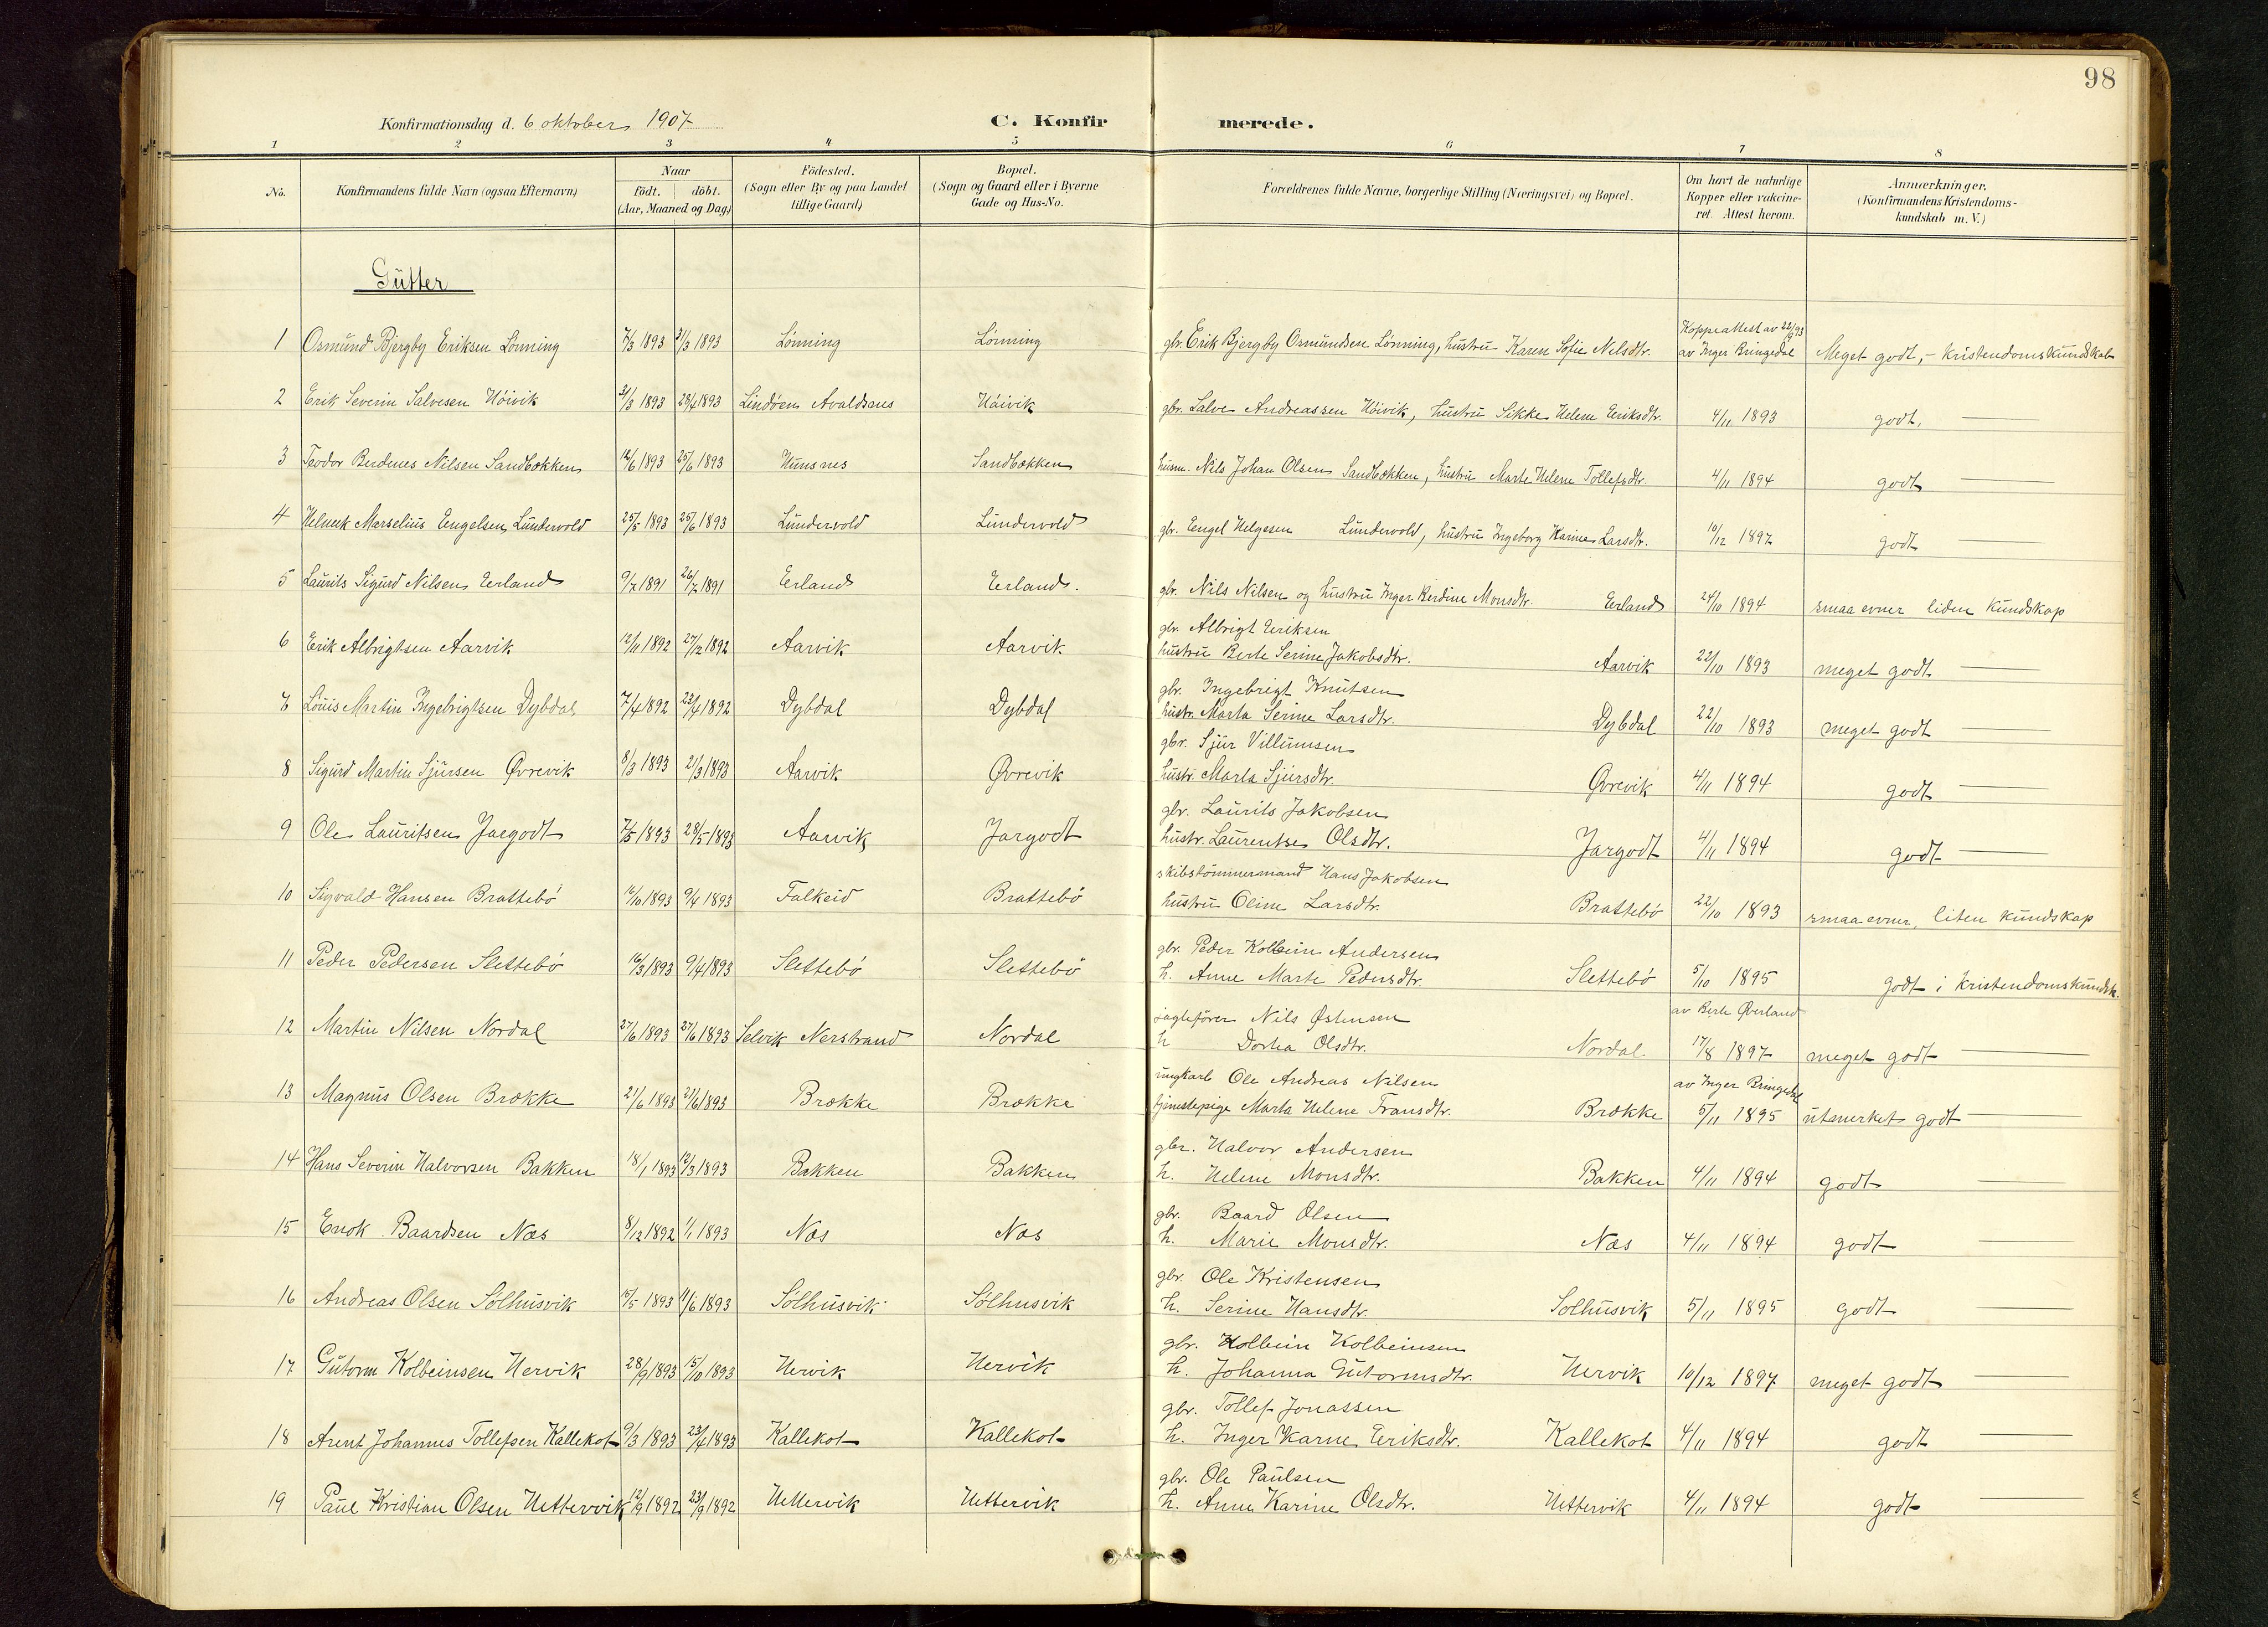 98
Konfirmationsdag d. 6 oktober 1907
C. Konfirmerede.
1 2 3 4 5 6 7 8
No.
Konfirmandens fulde Navn (ogsaa Efternavn)
Naar
födt. döbt.
(Aar, Maaned og Dag)
Födested.
(Sogn eller By og paa Landet
tillige Gaard)
Bopæl.
(Sogn og Gaard eller i Byerne
Gade og Hus-No.
Forældrenes fulde Navne, borgerlige Stilling (Næringsvei) og Bopæl.
Om havt de naturlige
Kopper eller vakcine-
ret. Attest herom.
Anmærkninger.
(Konfirmandens Kristendoms-
kundskab m. V.)
Gutter
Koppeattest av 22/9 93
1 Osmund Bjergby Eriksen Lønning 7/3 1893 31/3 1893 Lønning Lønning gbr. Erik Bjergby Osmundsen Lønning, hustru Karen Sofie Nilsdtr. av Inger Bringedal Meget godt, - kristendomskundskab
2 Erik Severin Salvesen Höivik 31/3 1893 23/4 1893 Lindøen Avaldsnes Höivik gbr. Salve Andreassen Höivik, hustru Sikke Helene Eriksdtr. 4/11 1893 godt,
3 Teodor Berdenes Nilsen Sandbækken 12/6 1893 25/6 1893 Hunsnes Sandbækken husm. Nils Johan Olsen Sandbækken, hustru Marte Helene Tollefsdtr. 4/11 1894 godt
4 Marselius Engelsen Lundervold 25/5 1893 25/6 1893 Lundervold Lundervold gbr. Engel Helgesen Lundervold, hustru Ingeborg Karine Larsdtr. 10/12 1897 godt
5 Laurits Sigurd Nilsen Erland 9/7 1891 26/7 1891 Erland Erland. gbr. Nils Nilsen og hustru Inger Berdine Monsdtr. Erland 24/10 1894 smaa evner liden kundskap
gbr. Albrigt Eriksen
6 Erik Albrigtsen Aarvik 12/11 1892 27/12 1892 Aarvik Aarvik hustru Berte Serine Jakobsdtr. Aarvik 22/10 1893 meget godt
gbr. Ingebrigt Knutsen
7 Louis Martin Ingebrigtsen Dybdal 7/4 1892 23/4 1892 Dybdal Dybdal hustr. Marta Serine Larsdtr. Dybdal 22/10 1893 meget godt
gbr. Sjur Villumsen
8 Sigurd Martin Sjursen Øvrevik 8/3 1893 21/3 1893 Aarvik Øvrevik hustr. Marta Sjursdtr. Øvrevik 4/11 1894 godt
gbr. Laurits Jakobsen
9 Ole Lauritsen Jargodt 7/5 1893 28/5 1893 Aarvik Jargodt hustr. Laurentse Olsdtr. Jargodt 4/11 1894 godt
skibstømmermand Hans Jakobsen
10 Sigvald Hansen Brattebö 1893 9/4 1893 Falkeid Brattebö hustru Oline Larsdtr. Brattebö 22/10 1893 smaa evner, liten kundskap
gbr. Peder Kolbein Andersen
11 Peder Pedersen Slettebö 16/3 1893 9/4 1893 Slettebö Slettebö h. Anne Marte Pedersdtr. Slettebö 5/10 1895 godt i kristendomskundsk.
jagtefører Nils Østensen av Berte Øverland
12 Martin Nilsen Nordal 27/6 1893 27/6 1893 Selvik Nerstrand Nordal h Dortea Olsdtr. Nordal. 17/8 1897 meget godt
ungkarl Ole Andreas Nilsen av Inger Bringedal
13 Magnus Olsen Brække 21/6 1893 21/6 1893 Brække Brække tjenestepige Marta Helene Transdtr. Brække 5/11 1895 utmerket godt
gbr. Halvor Andersen
14 Hans Severin Halvorsen Bakken 18/1 1893 12/3 1893 Bakken Bakken h. Helene Monsdtr. Bakken 4/11 1894 godt
gbr. Baard Olsen
15 Enok Baardsen Næs 8/12 1892 1/1 1893 Næs Næs h. Marie Monsdtr. Næs 4/11 1894 godt
gbr. Ole Kristensen
16 Andreas Olsen Solhusvik 15/5 1893 11/6 1893 Solhusvik Solhusvik h. Serine Hansdtr. Solhusvik 5/11 1895 godt
gbr. Kolbein Kolbeinsen
17 Gutorm Kolbeinsen Hervik 28/9 1893 15/10 1893 Hervik Hervik h. Johanna Gutormsdtr. Hervik 10/12 1897 meget godt
gbr. Tollef Jonassen
18 Arent Johannes Tollefsen Kallekot 9/3 1893 23/4 1893 Kallekot Kallekot h. Inger Karine Eriksdtr. Kallekot 4/11 1894 godt
gbr. Ole Paulsen
19 Paul Kristian Olsen Hettervik 12/9 1892 23/9 1892 Hettervik Hettervik h. Anne Karine Olsdtr. Hettervik 4/11 1894 godt